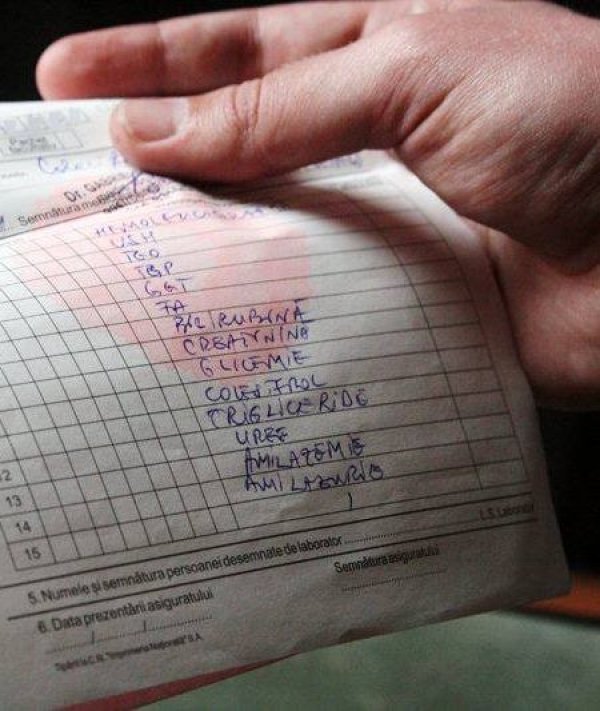 Semnătura me
HEMOLEUCOGRAMA
VSH
TGO
TGP
GGT
FA
BILIRUBINĂ
CREATININĂ
GLICEMIE
COLESTEROL
TRIGLICERIDE
UREE
AMILAZEMIE
12 AMILAZURIE
13
14
15
5. Numele și semnătura persoanei desemnate de laborator
L.S. Laborator
6. Data prezentării asiguratului
Semnătura asiguratului
Tipărit la C.N. "Imprimeria Națională" S.A.